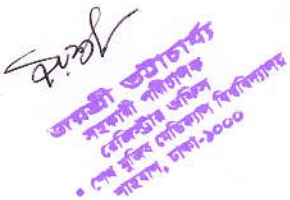 জয়শ্রী ভট্টাচার্য্য
সহকারী পরিচালক
রেজিস্ট্রার অফিস
শেখ মুজিব মেডিক্যাল বিশ্ববিদ্যালয়
শাহবাগ, ঢাকা-১০০০